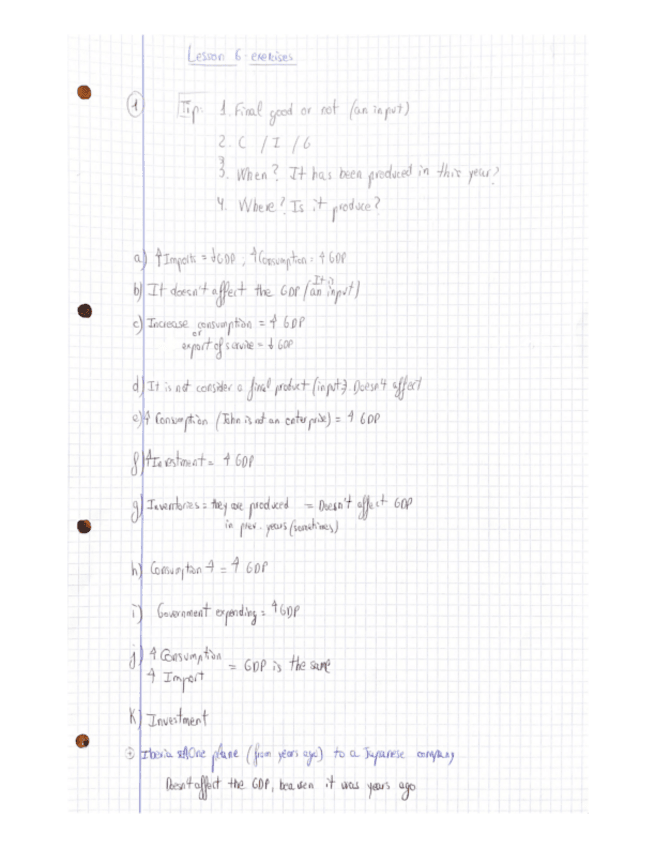 Lesson 6 - exercises
1 Tip: 1. Final good or not (an input)
2. C / I / G
3. When? It has been produced in this year?
4. Where? Is it produce?
a) ↑ Imports = ↓ GDP , ↑ Consumption = ↑ GDP
b) It doesn't affect the GDP (It is an input)
c) Increase consumption = ↑ GDP
or
export of service = ↓ GDP
d) It is not consider a final product (input) Doesn't affect
e) ↑ Consumption (John is not an enterprise) = ↑ GDP
f) ↑ Investment = ↑ GDP
g) Inventories = they are produced = Doesn't affect GDP
in prev. years (sometimes)
h) Consumption ↑ = ↑ GDP
i) Government expending = ↑ GDP
j) ↑ Consumption
↑ Import = GDP is the same
K) Investment
Iberia one plane (from years ago) to a Japanese company
Doesn't affect the GDP, it was years ago